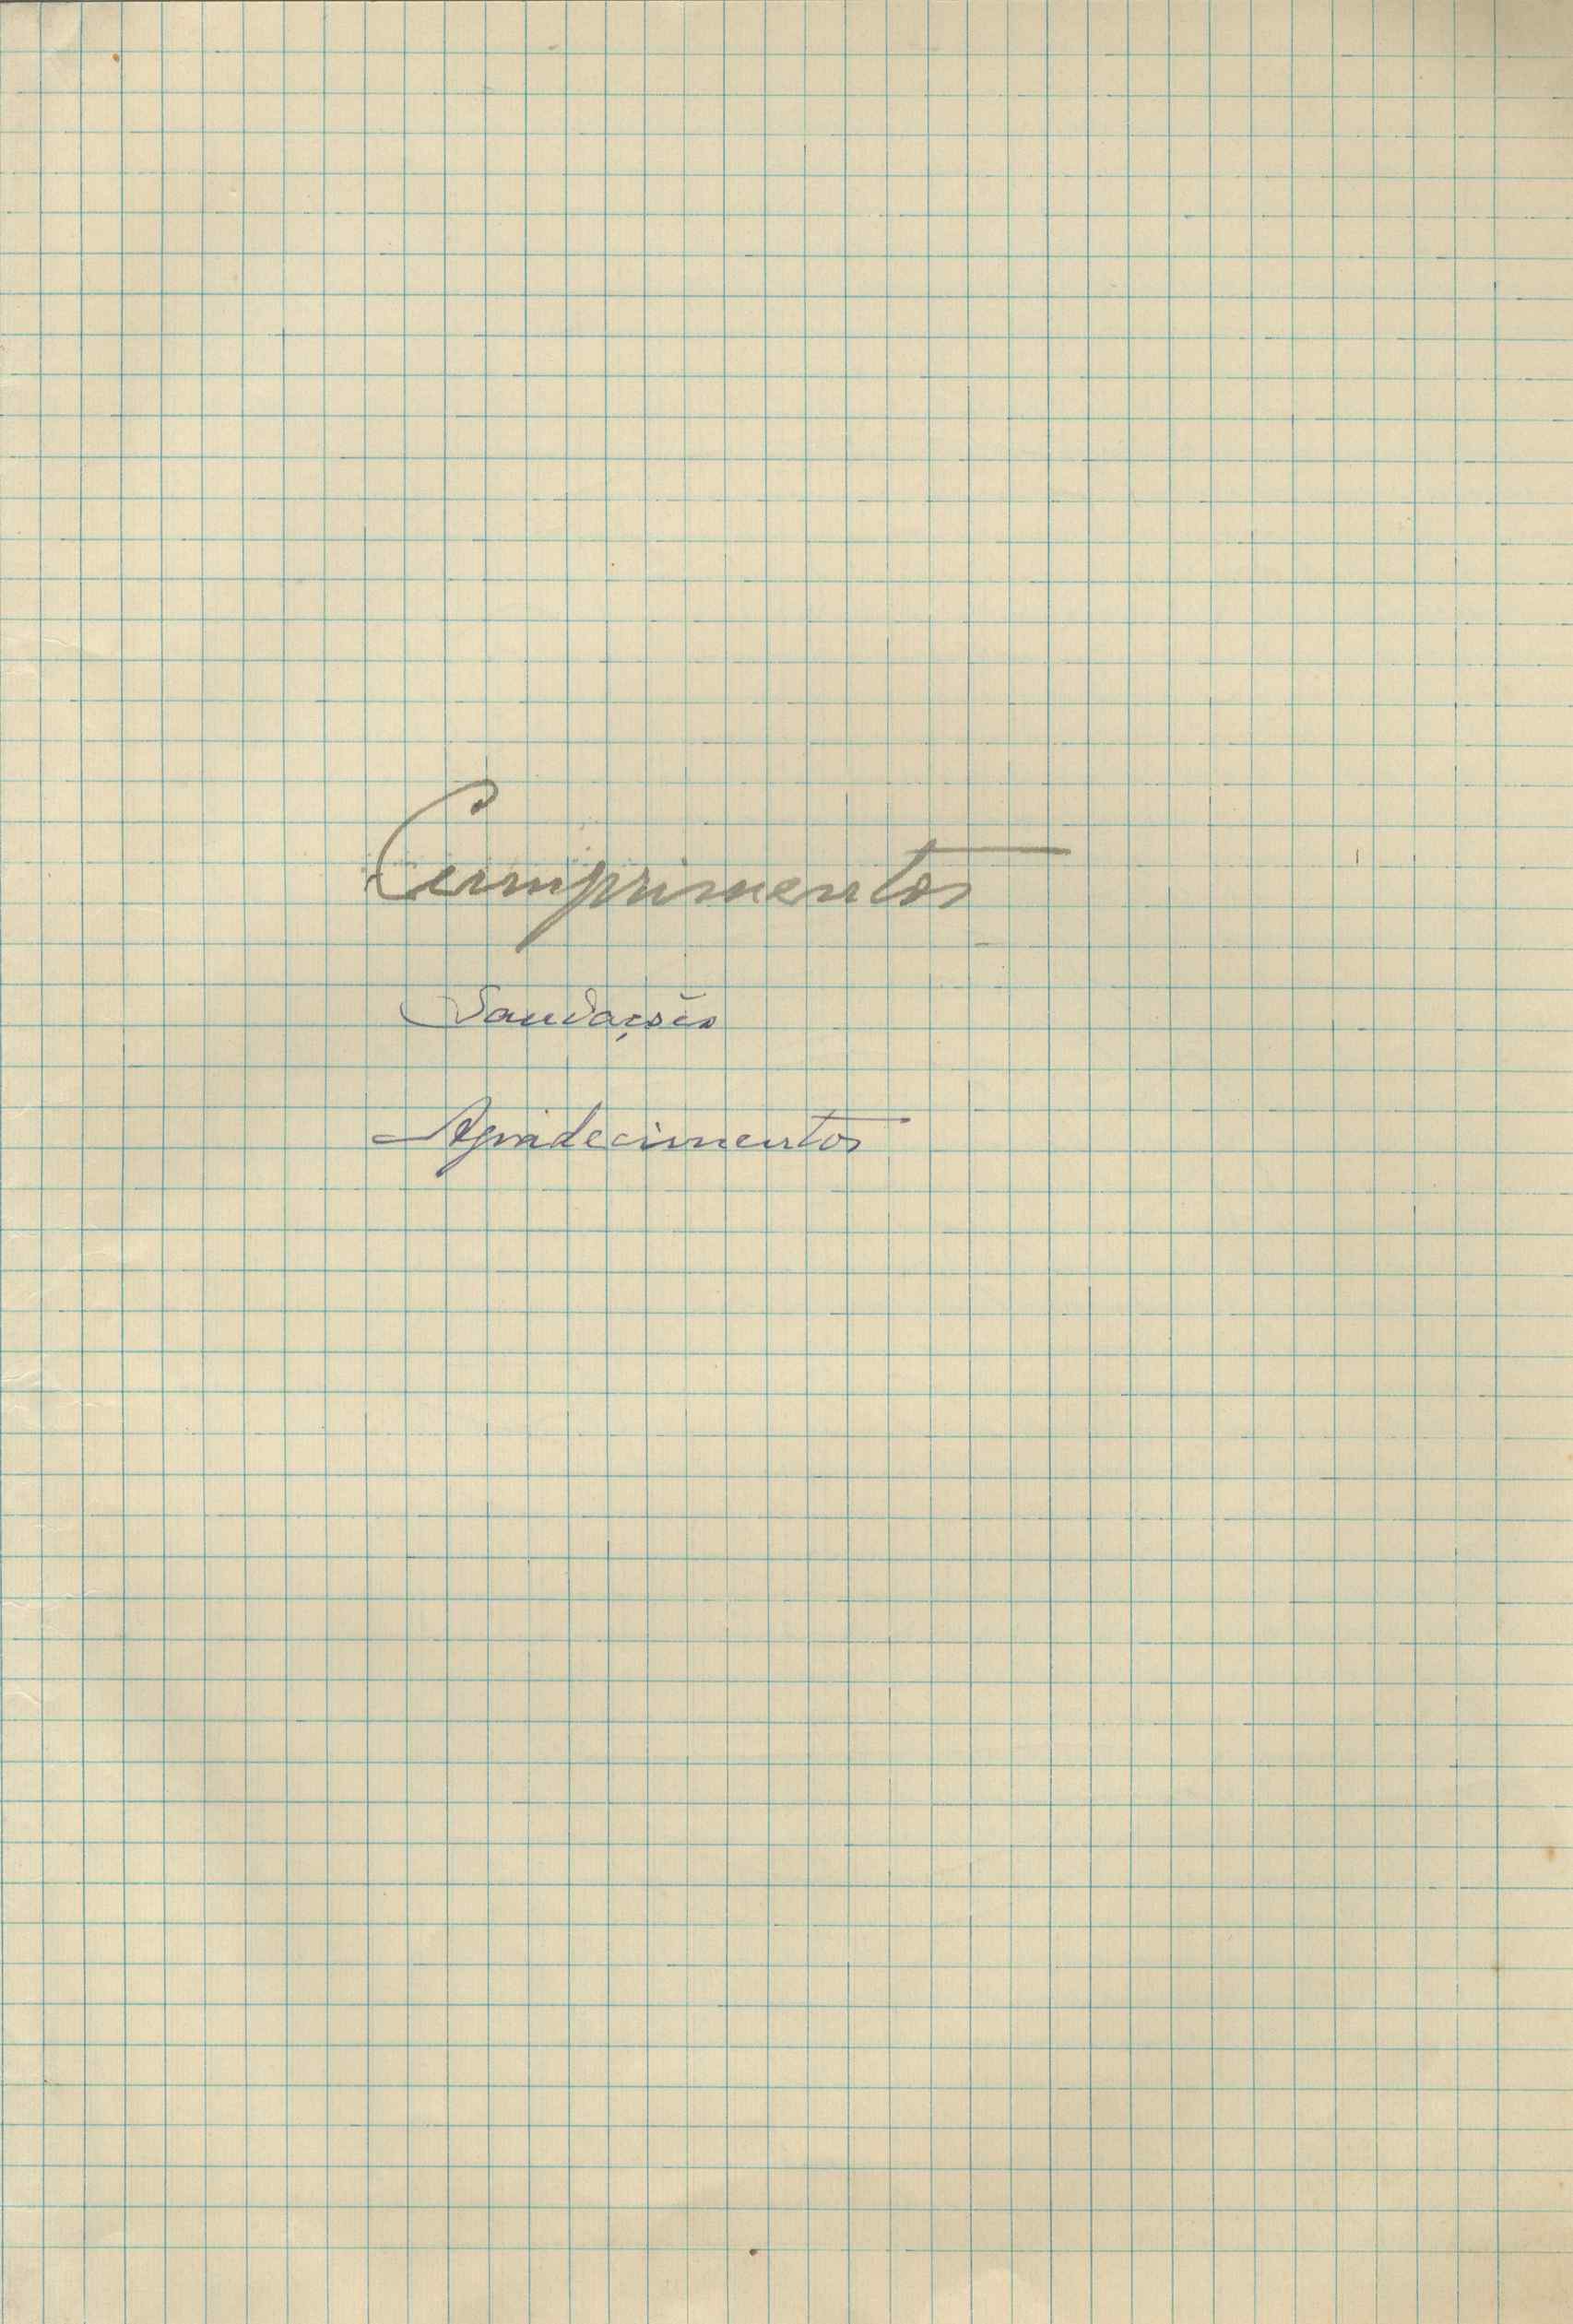 Cumprimentos
Saudações
Agradecimentos